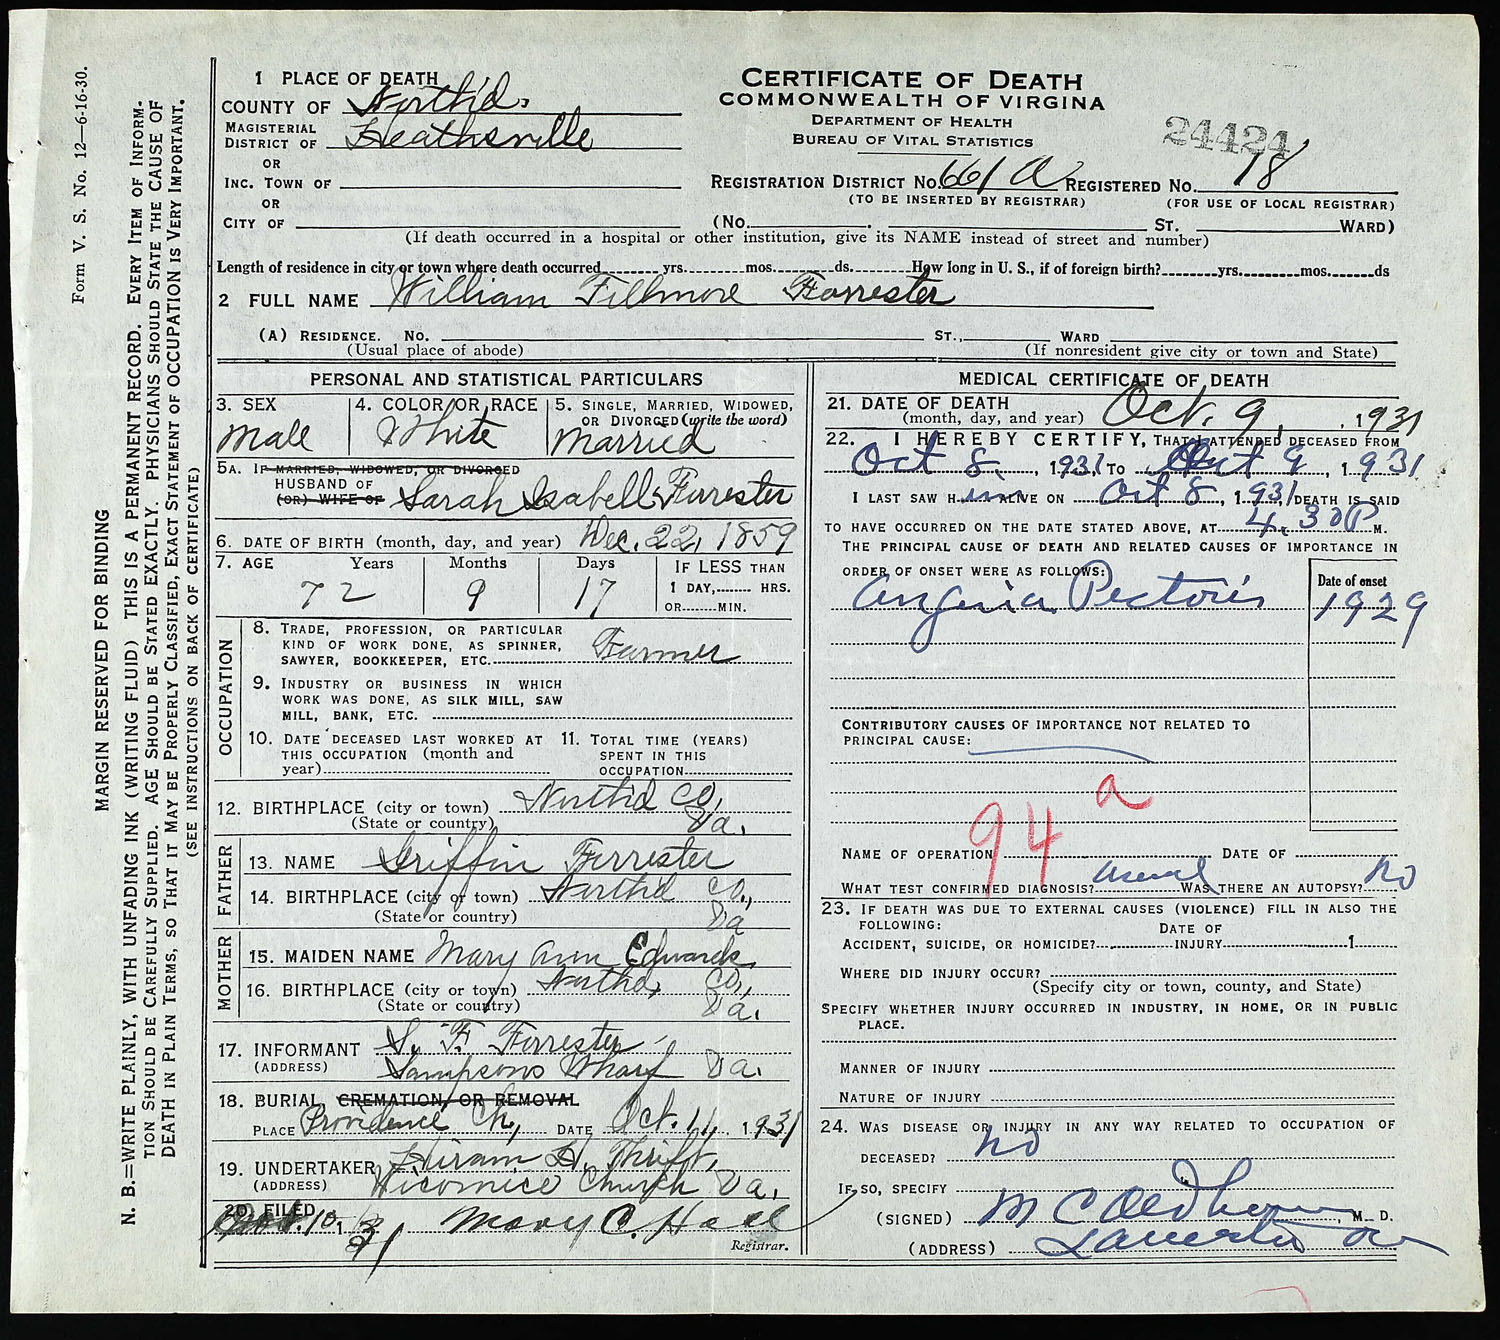 Form V. S. No. 12—6-16-30.
MARGIN RESERVED FOR BINDING
N. B.=WRITE PLAINLY, WITH UNFADING INK (WRITING FLUID) THIS IS A PERMANENT RECORD. EVERY ITEM OF INFORM-
TION SHOULD BE CAREFULLY SUPPLIED. AGE SHOULD BE STATED EXACTLY. PHYSICIANS SHOULD STATE THE CAUSE OF
DEATH IN PLAIN TERMS, SO THAT IT MAY BE PROPERLY CLASSIFIED, EXACT STATEMENT OF OCCUPATION IS VERY IMPORTANT.
(SEE INSTRUCTIONS ON BACK OF CERTIFICATE)
CERTIFICATE OF DEATH
COMMONWEALTH OF VIRGINA
DEPARTMENT OF HEALTH
BUREAU OF VITAL STATISTICS
24424
1 PLACE OF DEATH
COUNTY OF North'd.
MAGISTERIAL
DISTRICT OF Heathsville
OR
INC. TOWN OF
REGISTRATION DISTRICT NO. 661A REGISTERED NO. 18
(TO BE INSERTED BY REGISTRAR) (FOR USE OF LOCAL REGISTRAR)
OR
CITY OF (NO. ST. WARD)
(If death occurred in a hospital or other institution, give its NAME instead of street and number)
Length of residence in city or town where death occurred yrs. mos. ds. How long in U. S., if of foreign birth? yrs. mos. ds
2 FULL NAME William Fillmore Forrester
(A) RESIDENCE. NO. ST., WARD
(Usual place of abode) (If nonresident give city or town and State)
PERSONAL AND STATISTICAL PARTICULARS
3. SEX
Male
4. COLOR OR RACE
White
5. SINGLE, MARRIED, WIDOWED,
OR DIVORCED (write the word)
Married
5A. IF MARRIED, WIDOWED, OR DIVORCED
HUSBAND OF
(OR) WIFE OF Sarah Isabell Forrester
6. DATE OF BIRTH (month, day, and year) Dec. 22, 1859
7. AGE Years Months Days IF LESS THAN
1 DAY, HRS.
OR MIN.
72 9 17
OCCUPATION
8. TRADE, PROFESSION, OR PARTICULAR
KIND OF WORK DONE, AS SPINNER,
SAWYER, BOOKKEEPER, ETC. Farmer
9. INDUSTRY OR BUSINESS IN WHICH
WORK WAS DONE, AS SILK MILL, SAW
MILL, BANK, ETC.
10. DATE DECEASED LAST WORKED AT
THIS OCCUPATION (month and
year)
11. TOTAL TIME (YEARS)
SPENT IN THIS
OCCUPATION
12. BIRTHPLACE (city or town) North'd Co,
(State or country) Va.
FATHER
13. NAME Griffin Forrester
14. BIRTHPLACE (city or town) North'd Co.,
(State or country) Va
MOTHER
15. MAIDEN NAME Mary Ann Edwards
16. BIRTHPLACE (city or town) North'd, Co.,
(State or country) Va.
17. INFORMANT S. F. Forrester
(ADDRESS) Sampsons Wharf Va.
18. BURIAL, CREMATION, OR REMOVAL
PLACE Providence Ch, DATE Oct. 11, 1931
19. UNDERTAKER Hiram H. Thrift,
(ADDRESS) Wicomico Church Va.
20. FILED 10, 1931 Mary C. Hall
Registrar.
MEDICAL CERTIFICATE OF DEATH
21. DATE OF DEATH
(month, day, and year) Oct. 9, 1931
22. I HEREBY CERTIFY, THAT I ATTENDED DECEASED FROM
Oct 8, 1931 TO Oct 9, 1931
I LAST SAW HIM ALIVE ON Oct 8, 1931 DEATH IS SAID
TO HAVE OCCURRED ON THE DATE STATED ABOVE, AT 4.30P M.
THE PRINCIPAL CAUSE OF DEATH AND RELATED CAUSES OF IMPORTANCE IN
ORDER OF ONSET WERE AS FOLLOWS:
Date of onset
Angina Pectoris 1929
CONTRIBUTORY CAUSES OF IMPORTANCE NOT RELATED TO
PRINCIPAL CAUSE:
94 a
NAME OF OPERATION DATE OF
WHAT TEST CONFIRMED DIAGNOSIS? usual WAS THERE AN AUTOPSY? No
23. IF DEATH WAS DUE TO EXTERNAL CAUSES (VIOLENCE) FILL IN ALSO THE
FOLLOWING:
DATE OF
ACCIDENT, SUICIDE, OR HOMICIDE? INJURY 1
WHERE DID INJURY OCCUR?
(Specify city or town, county, and State)
SPECIFY WHETHER INJURY OCCURRED IN INDUSTRY, IN HOME, OR IN PUBLIC
PLACE.
MANNER OF INJURY
NATURE OF INJURY
24. WAS DISEASE OR INJURY IN ANY WAY RELATED TO OCCUPATION OF
DECEASED? No
IF SO, SPECIFY
(SIGNED) M C Oldham, M. D.
(ADDRESS) Lancaster Va